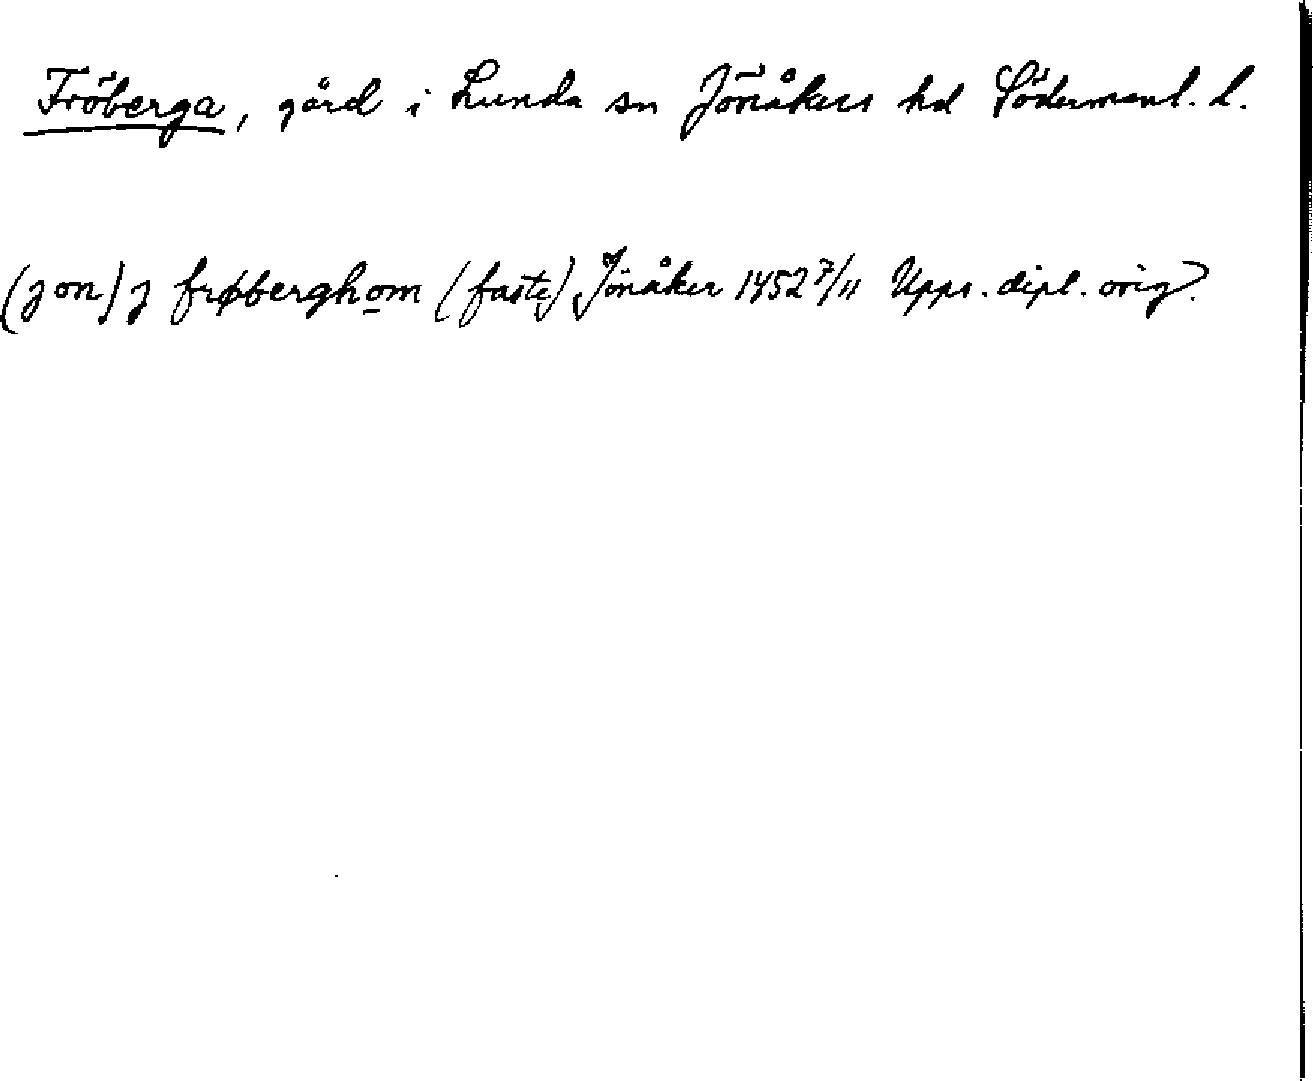 Fröberga, gård i Lunda sn Jönåkers hd Södermanl. l.
(jon) j frøberghom (faste) Jönåker 1452 7/11 Upps. dipl. orig.